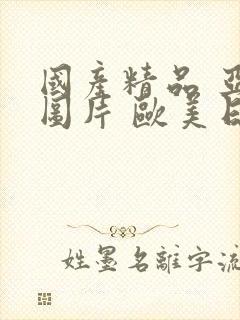 國產精品
圖片 歐美
姓墨名離字